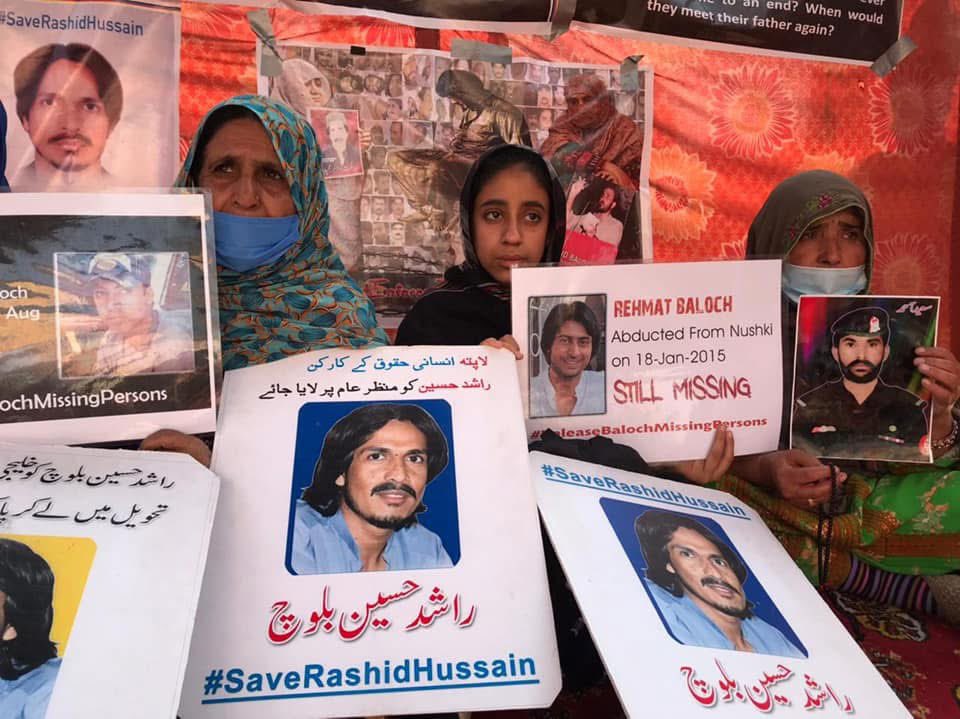 #SaveRashidHussain
to an end? When would
they meet their father again?
loch
Aug
lochMissingPersons
REHMAT BALOCH
Abducted From Nushki
on 18-Jan-2015
STILL MISSING
#ReleaseBalochMissingPersons
لاپتہ انسانی حقوق کے کارکن
راشد حسین کو منظر عام پر لایا جائے
راشد حسین بلوچ
#SaveRashidHussain
راشد حسین بلوچ کو خلیج
تحویل میں لے کر پا
#SaveRashidHussain
راشد حسین بلوچ